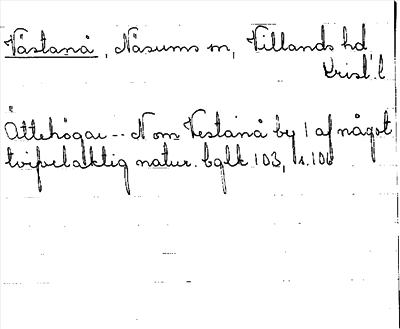 Västanå, Näsums sn, Villands hd
Krist.l.
Ättehögar -- N om Vestanå by 1 af något
tvifvelaktig natur. bglk 103, s. 100